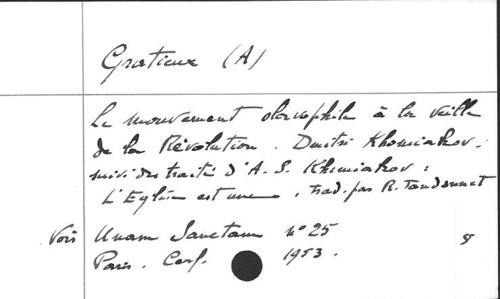 Gratieux (A)
Le mouvement slavophile à la veille
de la Révolution. Dmitri Khomiakov.
suivi du traité d'A. S. Khomiakov :
L'Eglise est une, trad. par R. Tandonnet
Voir Unam Sanctam n° 25
Paris. Cerf. 1953.